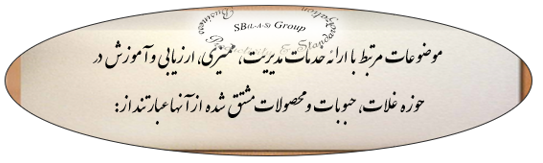 SB(L-A-S) Group
موضوعات مرتبط با ارائه خدمات مدیریت، ممیزی، ارزیابی و آموزش در
حوزه غلات، حبوبات و محصولات مشتق شده از آنها عبارتند از: